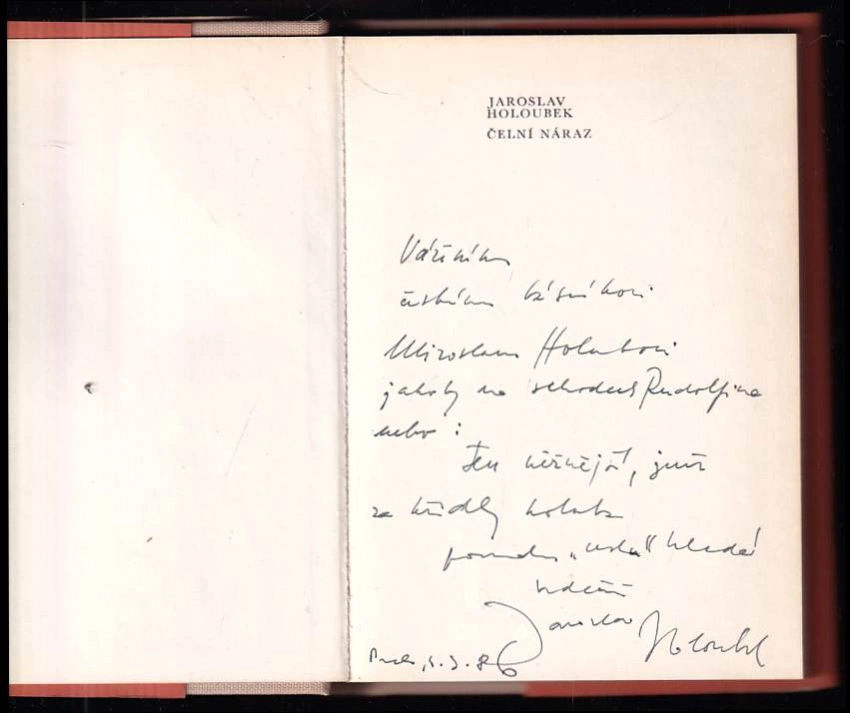 JAROSLAV
HOLOUBEK
ČELNÍ NÁRAZ
Váženému
českému básníkovi
Miroslavu Holubovi
jakoby na schodech Rudolfina
nebo :
Jen něžnější, jenž
za křídly holuba
hledá
srdečně
Jaroslav Holoubek
86